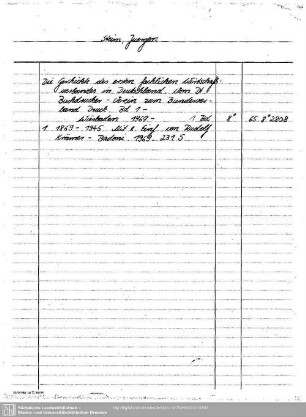 Stein, Juergen
Die Geschichte des ersten fachlichen Wirtschafts-
verbandes in Deutschland. Vom Dt.
Buchdrucker-Verein zum Bundesver-
band Druck. Bd 1-
Wiesbaden. 1969- 1 Bd 8° 65. 8° 2808
1. 1869-1945. Mit e. Einf. von Rudolf
Krämer-Badoni. 1969. 231 S
Sächsische Landesbibliothek -
Staats- und Universitätsbibliothek Dresden